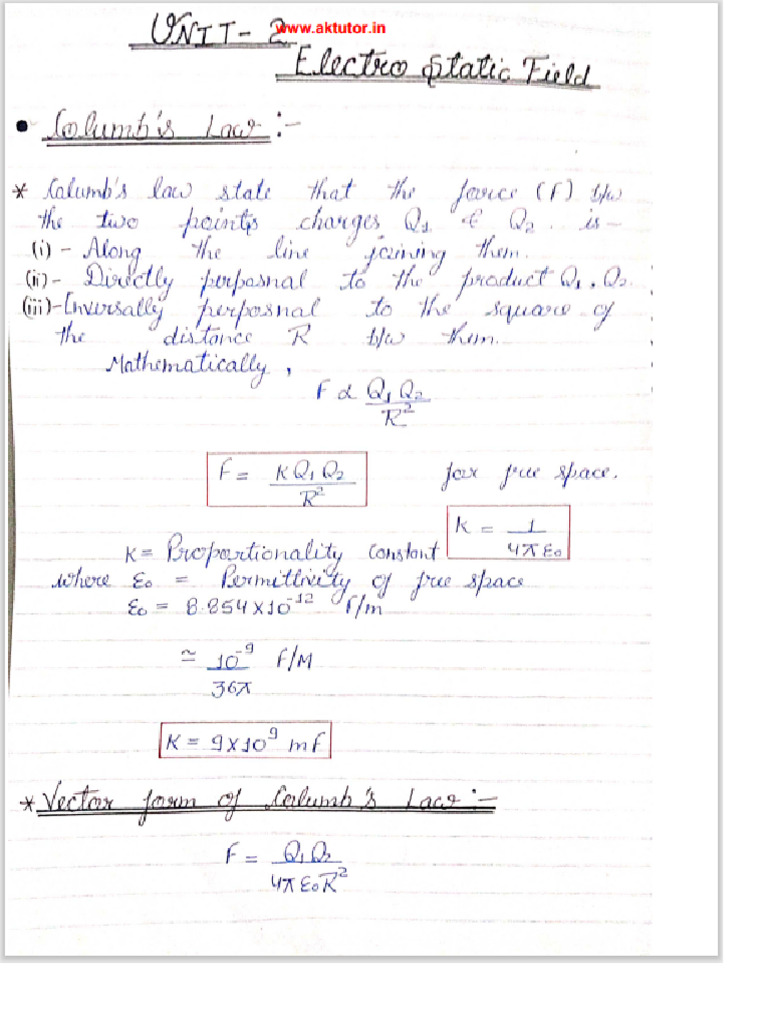 www.aktutor.in
UNIT - 2
Electro Static Field
• Columb's Law :-
* Columb's law state that the force (F) b/w
the two points charges Q1 & Q2 . is -
(i) - Along the line joining them.
(ii) - Directly perposnal to the product Q1 . Q2.
(iii) - Inversally perposnal to the square of
the distance R b/w them.
Mathematically ,
F ∝ Q1 Q2 / R²
F = K Q1 Q2 / R² for free space.
K = 1 / 4π ε0
K = Proportionality constant
where ε0 = Permittivity of free space
ε0 = 8.854 × 10⁻¹² F/m
≃ 10⁻⁹ / 36π F/M
K = 9 × 10⁹ mF
* Vector form of Columb's Law :-
F = Q1 Q2 / 4π ε0 R²